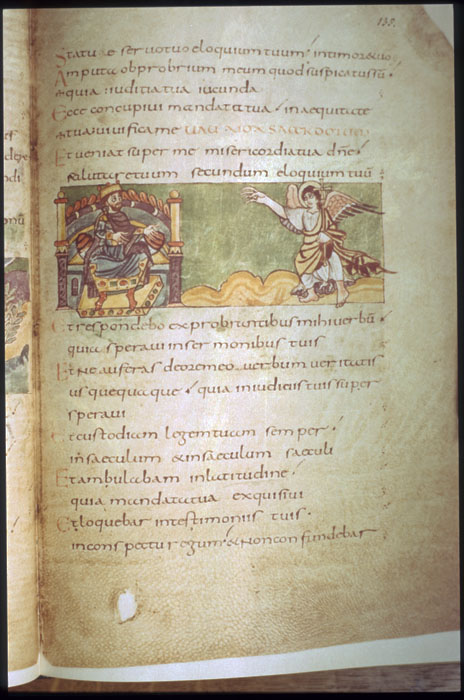 Statuae servo tuo eloquium tuum intimore tuo
Amputa obprobrium meum quod suspicatus sū·
quia iuditia tua iucunda
Ecce concupivi mandata tua in aequitate
tua vivifica me VAU
Et veniat super me misericordia tua dn̄e·
salutare tuum secundum eloquium tuū
Et respondebo exprobrantibus mihi verbū·
quia speravi in sermonibus tuis
Et ne auferas de ore meo verbum veritatis
usquequaque quia in iudiciis tuis super
speravi
Et custodiam legem tuam semper
in saeculum & in saeculum saeculi
Et ambulabam in latitudine
quia mandata tua exquisivi
Et loquebar in testimoniis tuis·
in conspectu regum & non confundebar